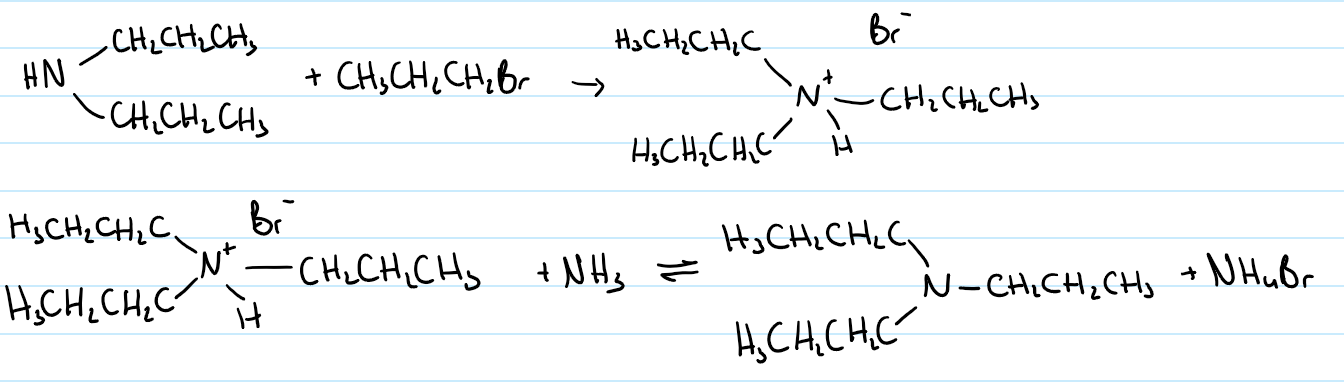 HN CH₂CH₂CH₃ CH₂CH₂CH₃ + CH₃CH₂CH₂Br → H₃CH₂CH₂C H₃CH₂CH₂C N⁺ H CH₂CH₂CH₃ Br⁻
H₃CH₂CH₂C H₃CH₂CH₂C N⁺ H CH₂CH₂CH₃ Br⁻ + NH₃ ⇌ H₃CH₂CH₂C H₃CH₂CH₂C N CH₂CH₂CH₃ + NH₄Br